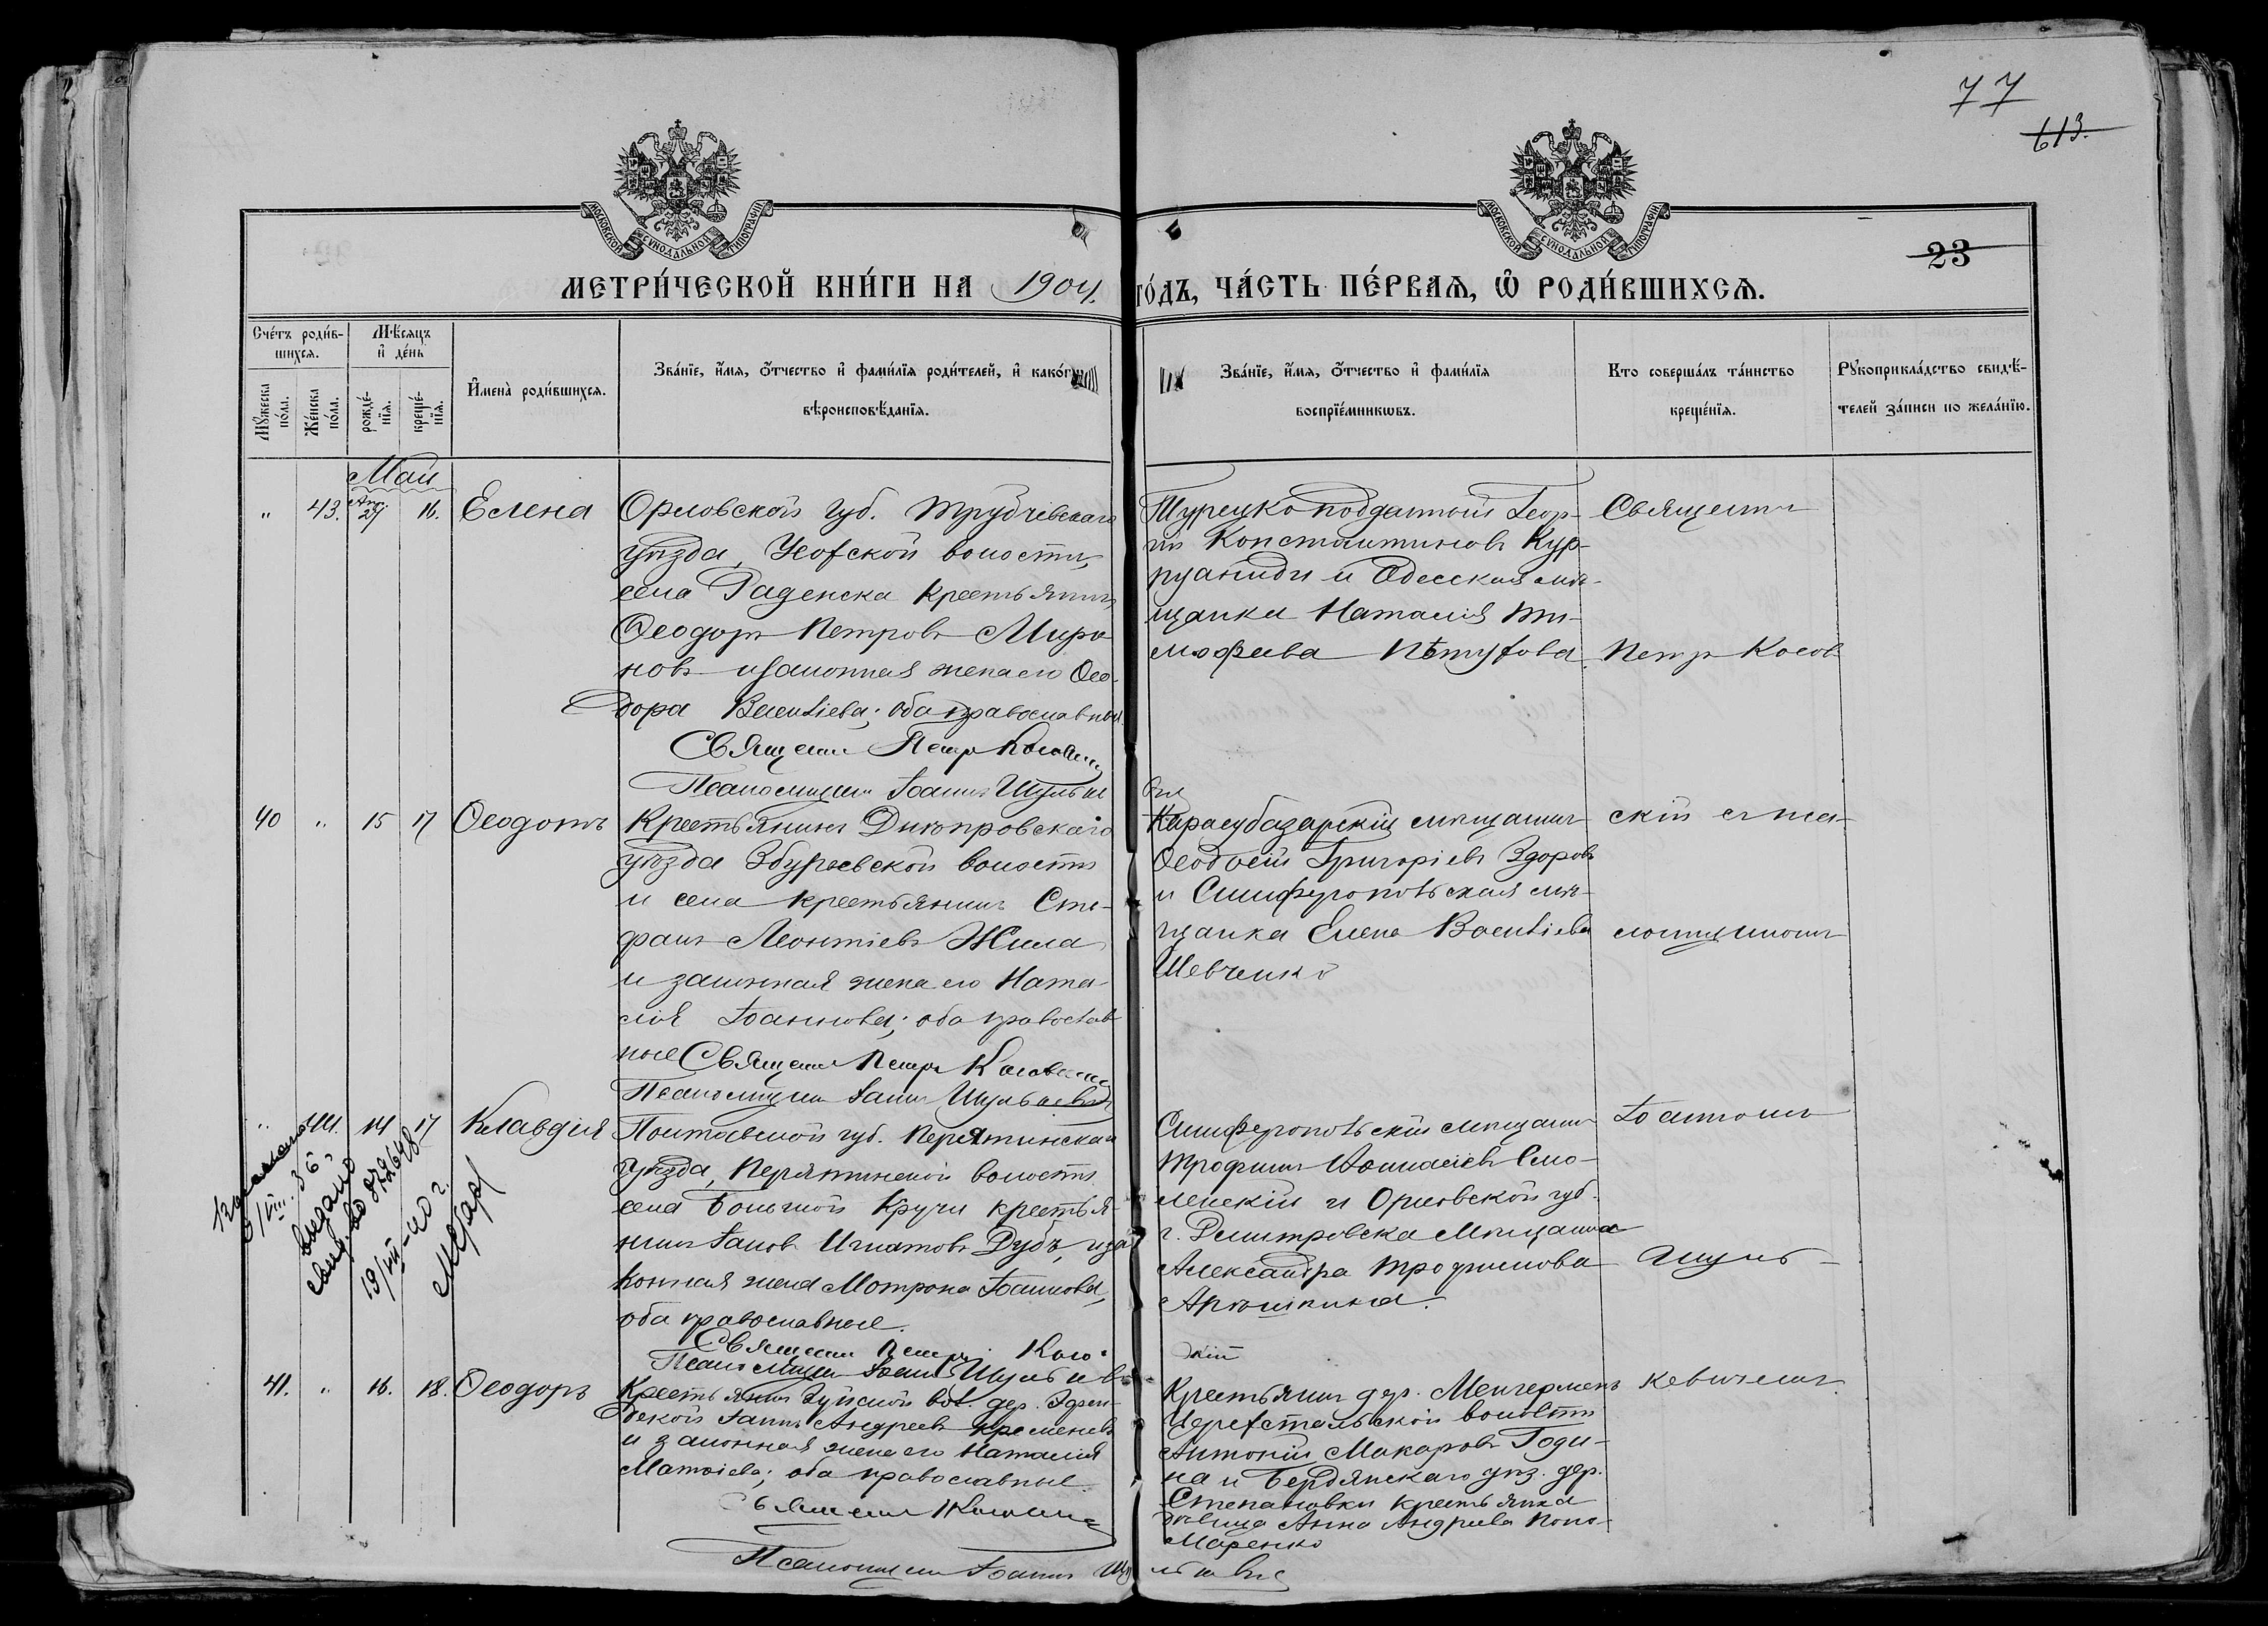 77
613.
МОСКОВСКОЙ СѴНОДАЛЬНОЙ ТИПОГРАФІИ
МОСКОВСКОЙ СѴНОДАЛЬНОЙ ТИПОГРАФІИ
23
МЕТРИ́ЧЕСКОЙ КНИ́ГИ НА 1904. ГО́ДЪ, ЧА́СТЬ ПЕ́РВАЯ, Ѡ РОДИ́ВШИХСЯ.
Сче́тъ роди́в-
шихся.
Мꙋ́жеска по́ла.
Же́нска по́ла.
Мѣ́сяцъ
и҆ де́нь
рожде́-
нїя.
креще́-
нїя.
И҆мена̀ роди́вшихся.
Зва́нїе, и҆́мя, о҆́тчество и҆ фами́лїя роди́телей, и҆ како́гѡ
вѣроисповѣ́данїя.
Зва́нїе, и҆́мя, о҆́тчество и҆ фами́лїя
воспрїе́мникѡвъ.
Кто соверша́лъ та́инство
креще́нїя.
Рꙋкоприкла́дство свидѣ́-
телей за́писи по жела́нїю.
Май
" 43. Апр. 29 16. Елена
Орловской губ. Трубчевскаго
уѣзда, волости,
села Раденска крестьянинъ
Ѳеодоръ Петровъ Миро-
новъ и законная жена его Ѳео-
дора Васильева; оба православные.
Священникъ Петръ
Псаломщикъ Іоаннъ
Турецкоподданный Геор-
гій Константиновъ Кур-
и Одесская мѣ-
щанка Наталія Ти-
моѳеева Пѣтухова.
Священникъ
Петръ Косов-
40 " 15 17 Ѳеодотъ
Крестьянинъ Днѣпровскаго
уѣзда Збурьевской волости
и села крестьянинъ Сте-
фанъ Леонтіевъ Жила
и законная жена его Ната-
лія Іоаннова; оба православ-
ные Священникъ Петръ
Псаломщикъ Іоаннъ
Карасубазарскій мѣщанинъ
Ѳеодосій Григоріевъ Здоровъ
и Симферопольская мѣ-
щанка Елена Васильева
Шевченко
скій съ пса-
ломщикомъ
" 44. 14 17 Клавдія
Полтавской губ. Пирятинскаго
уѣзда, Пирятинской волости
села Большой Кручи крестья-
нинъ Іаковъ Игнатовъ Дубъ, и за-
конная жена Мотрона Іоаннова,
оба православные.
Священникъ Петръ
Псаломщикъ Іоаннъ
Симферопольскій мѣщанинъ
Трофимъ Смо-
ленскій и Орловской губ.
г. Дмитровска мѣщанка
Александра Трофимова
Арюшкина.
Іоанномъ
Шуль-
выдано
свид. во 872648
19/VII-40 г.
41. " 16. 18. Ѳеодоръ
Крестьянинъ Зуйской вол. дер.
Іаннъ Андреевъ Кременевъ
и законная жена его Наталія
Матѳіева; оба православные.
Священникъ
Псаломщикъ Іоаннъ
Крестьянинъ дер. Менгерменъ
волости
Антоній Макаровъ Годи-
на и Бердянскаго уѣз. дер.
Степановки крестьянка
дѣвица Анна Андреева Поно-
маренко
кевичемъ.